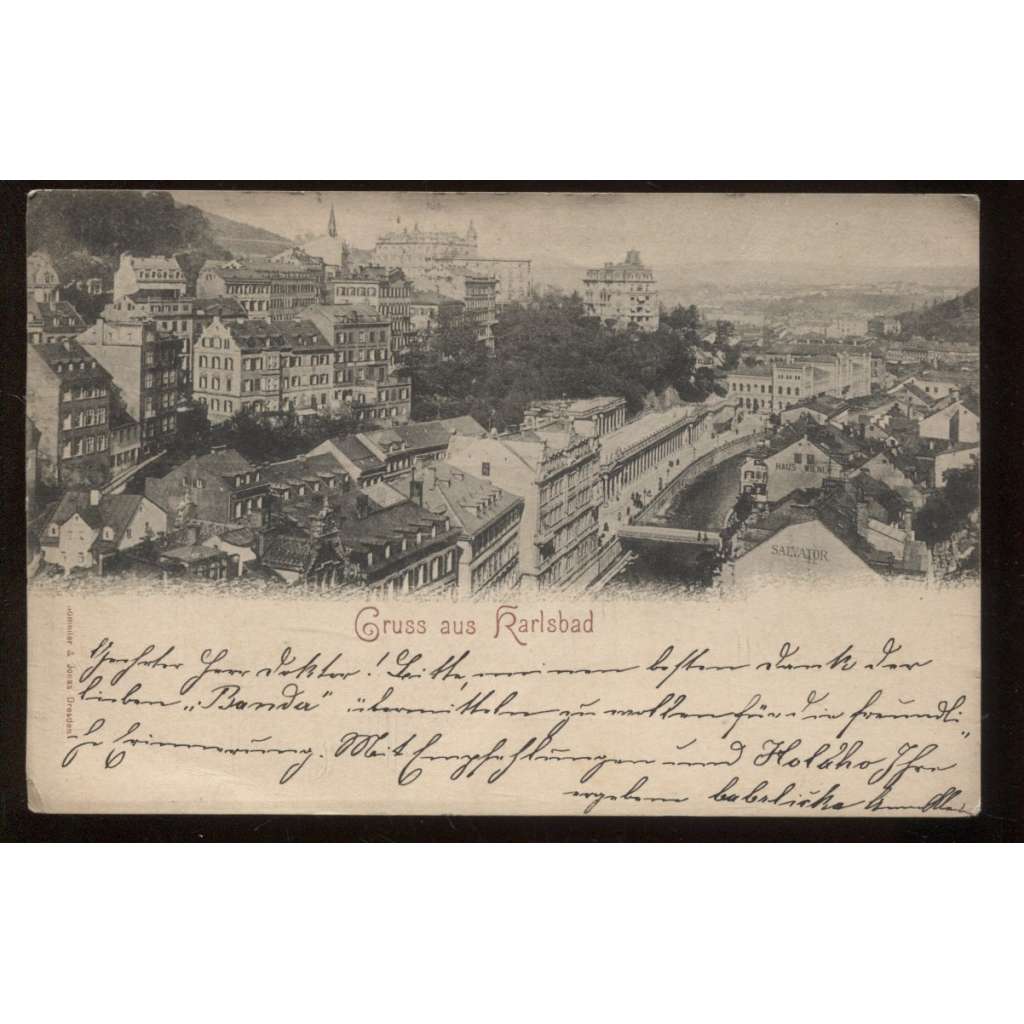 HAUS
SALVATOR
Gruss aus Karlsbad
& Jonas Dresden
Geehrter Herr Doktor! Bitte, meinen besten Dank der
lieben „Banda" übermitteln zu wollen für die freundli-
che Erinnerung. Mit Empfehlungen und Holáho Ihre
ergebene babelička